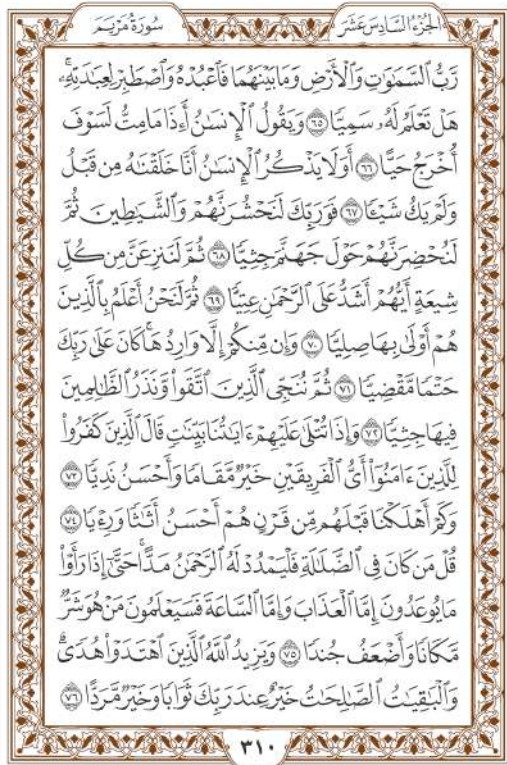 الجُزْءُ السَّادِسَ عَشَرَ
سُورَةُ مَرْيَمَ
رَّبُّ ٱلسَّمَٰوَٰتِ وَٱلْأَرْضِ وَمَا بَيْنَهُمَا فَٱعْبُدْهُ وَٱصْطَبِرْ لِعِبَٰدَتِهِۦۚ
هَلْ تَعْلَمُ لَهُۥ سَمِيًّا ٦٥ وَيَقُولُ ٱلْإِنسَٰنُ أَءِذَا مَا مِتُّ لَسَوْفَ
أُخْرَجُ حَيًّا ٦٦ أَوَلَا يَذْكُرُ ٱلْإِنسَٰنُ أَنَّا خَلَقْنَٰهُ مِن قَبْلُ
وَلَمْ يَكُ شَيْـًٔا ٦٧ فَوَرَبِّكَ لَنَحْشُرَنَّهُمْ وَٱلشَّيَٰطِينَ ثُمَّ
لَنُحْضِرَنَّهُمْ حَوْلَ جَهَنَّمَ جِثِيًّا ٦٨ ثُمَّ لَنَنزِعَنَّ مِن كُلِّ
شِيعَةٍ أَيُّهُمْ أَشَدُّ عَلَى ٱلرَّحْمَٰنِ عِتِيًّا ٦٩ ثُمَّ لَنَحْنُ أَعْلَمُ بِٱلَّذِينَ
هُمْ أَوْلَىٰ بِهَا صِلِيًّا ٧٠ وَإِن مِّنكُمْ إِلَّا وَارِدُهَاۚ كَانَ عَلَىٰ رَبِّكَ
حَتْمًا مَّقْضِيًّا ٧١ ثُمَّ نُنَجِّي ٱلَّذِينَ ٱتَّقَوا۟ وَّنَذَرُ ٱلظَّٰلِمِينَ
فِيهَا جِثِيًّا ٧٢ وَإِذَا تُتْلَىٰ عَلَيْهِمْ ءَايَٰتُنَا بَيِّنَٰتٍ قَالَ ٱلَّذِينَ كَفَرُوا۟
لِلَّذِينَ ءَامَنُوٓا۟ أَىُّ ٱلْفَرِيقَيْنِ خَيْرٌ مَّقَامًا وَأَحْسَنُ نَدِيًّا ٧٣
وَكَمْ أَهْلَكْنَا قَبْلَهُم مِّن قَرْنٍ هُمْ أَحْسَنُ أَثَٰثًا وَرِءْيًا ٧٤
قُلْ مَن كَانَ فِى ٱلضَّلَٰلَةِ فَلْيَمْدُدْ لَهُ ٱلرَّحْمَٰنُ مَدًّاۚ حَتَّىٰٓ إِذَا رَأَوْا۟
مَا يُوعَدُونَ إِمَّا ٱلْعَذَابَ وَإِمَّا ٱلسَّاعَةَ فَسَيَعْلَمُونَ مَنْ هُوَ شَرٌّ
مَّكَانًا وَأَضْعَفُ جُندًا ٧٥ وَيَزِيدُ ٱللَّهُ ٱلَّذِينَ ٱهْتَدَوْا۟ هُدًىۗ
وَٱلْبَٰقِيَٰتُ ٱلصَّٰلِحَٰتُ خَيْرٌ عِندَ رَبِّكَ ثَوَابًا وَخَيْرٌ مَّرَدًّا ٧٦
٣١٠